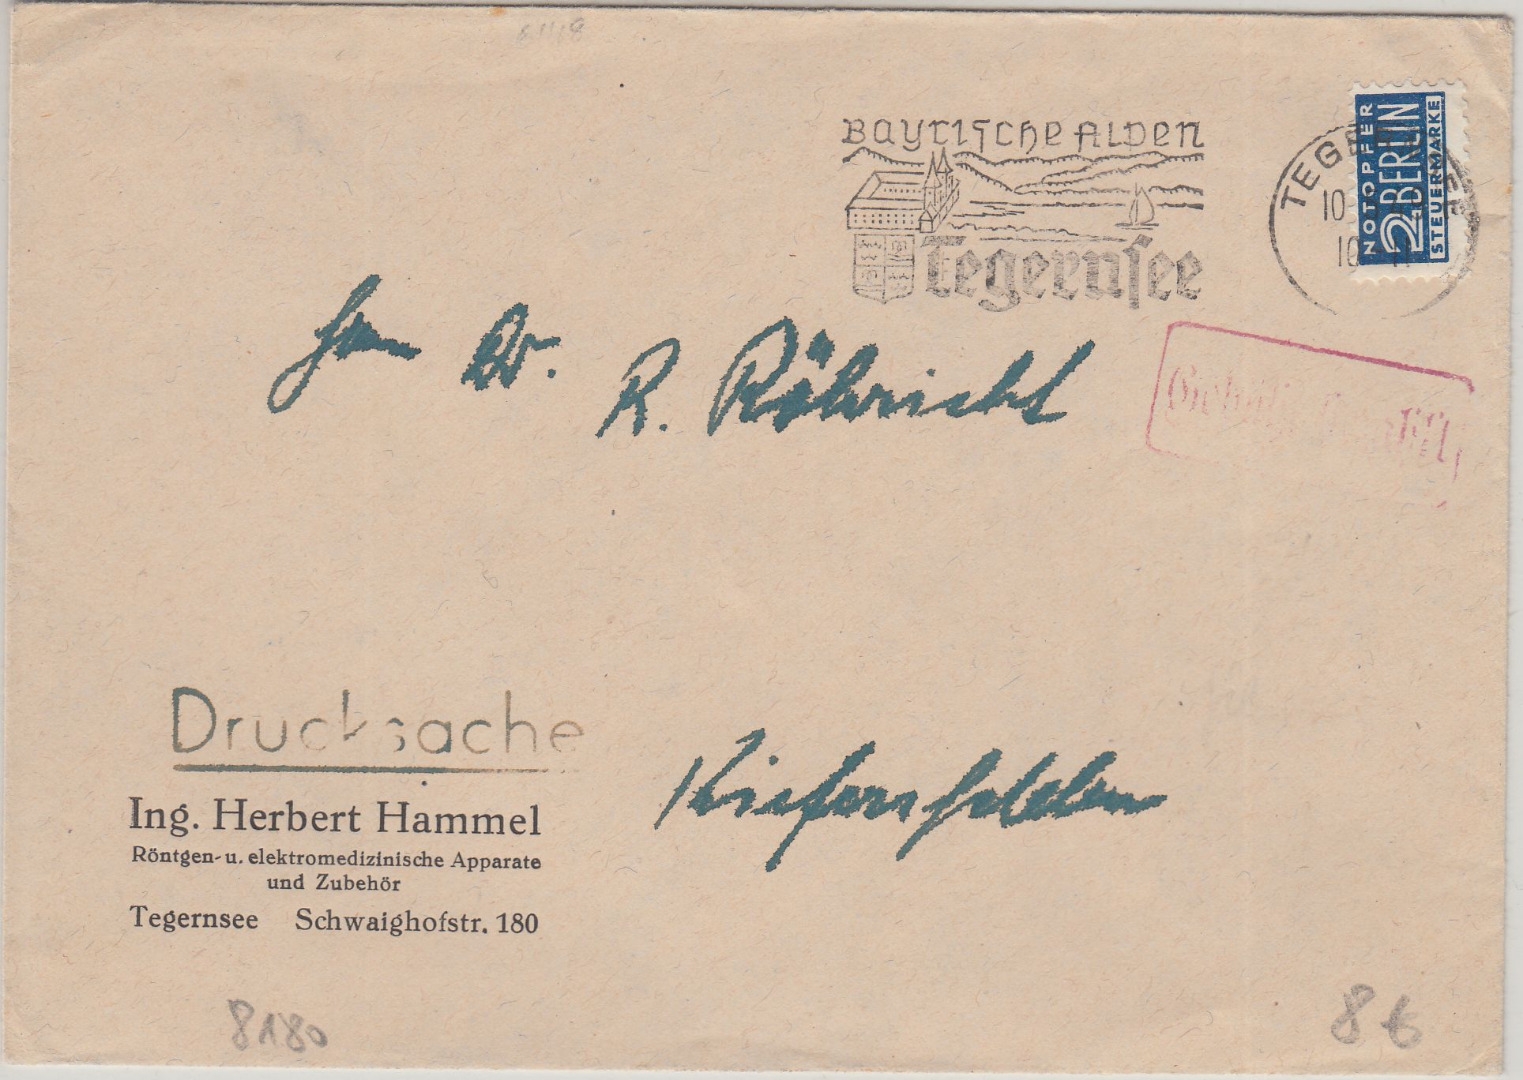 Bayrische Alpen
Tegernsee
TEGERNSEE
10
10 - 11
NOTOPFER
2 BERLIN
STEUERMARKE
Herrn Dr. R. Röhricht
Kiefersfelden
Drucksache
Ing. Herbert Hammel
Röntgen- u. elektromedizinische Apparate
und Zubehör
Tegernsee Schwaighofstr. 180
8180
8 €